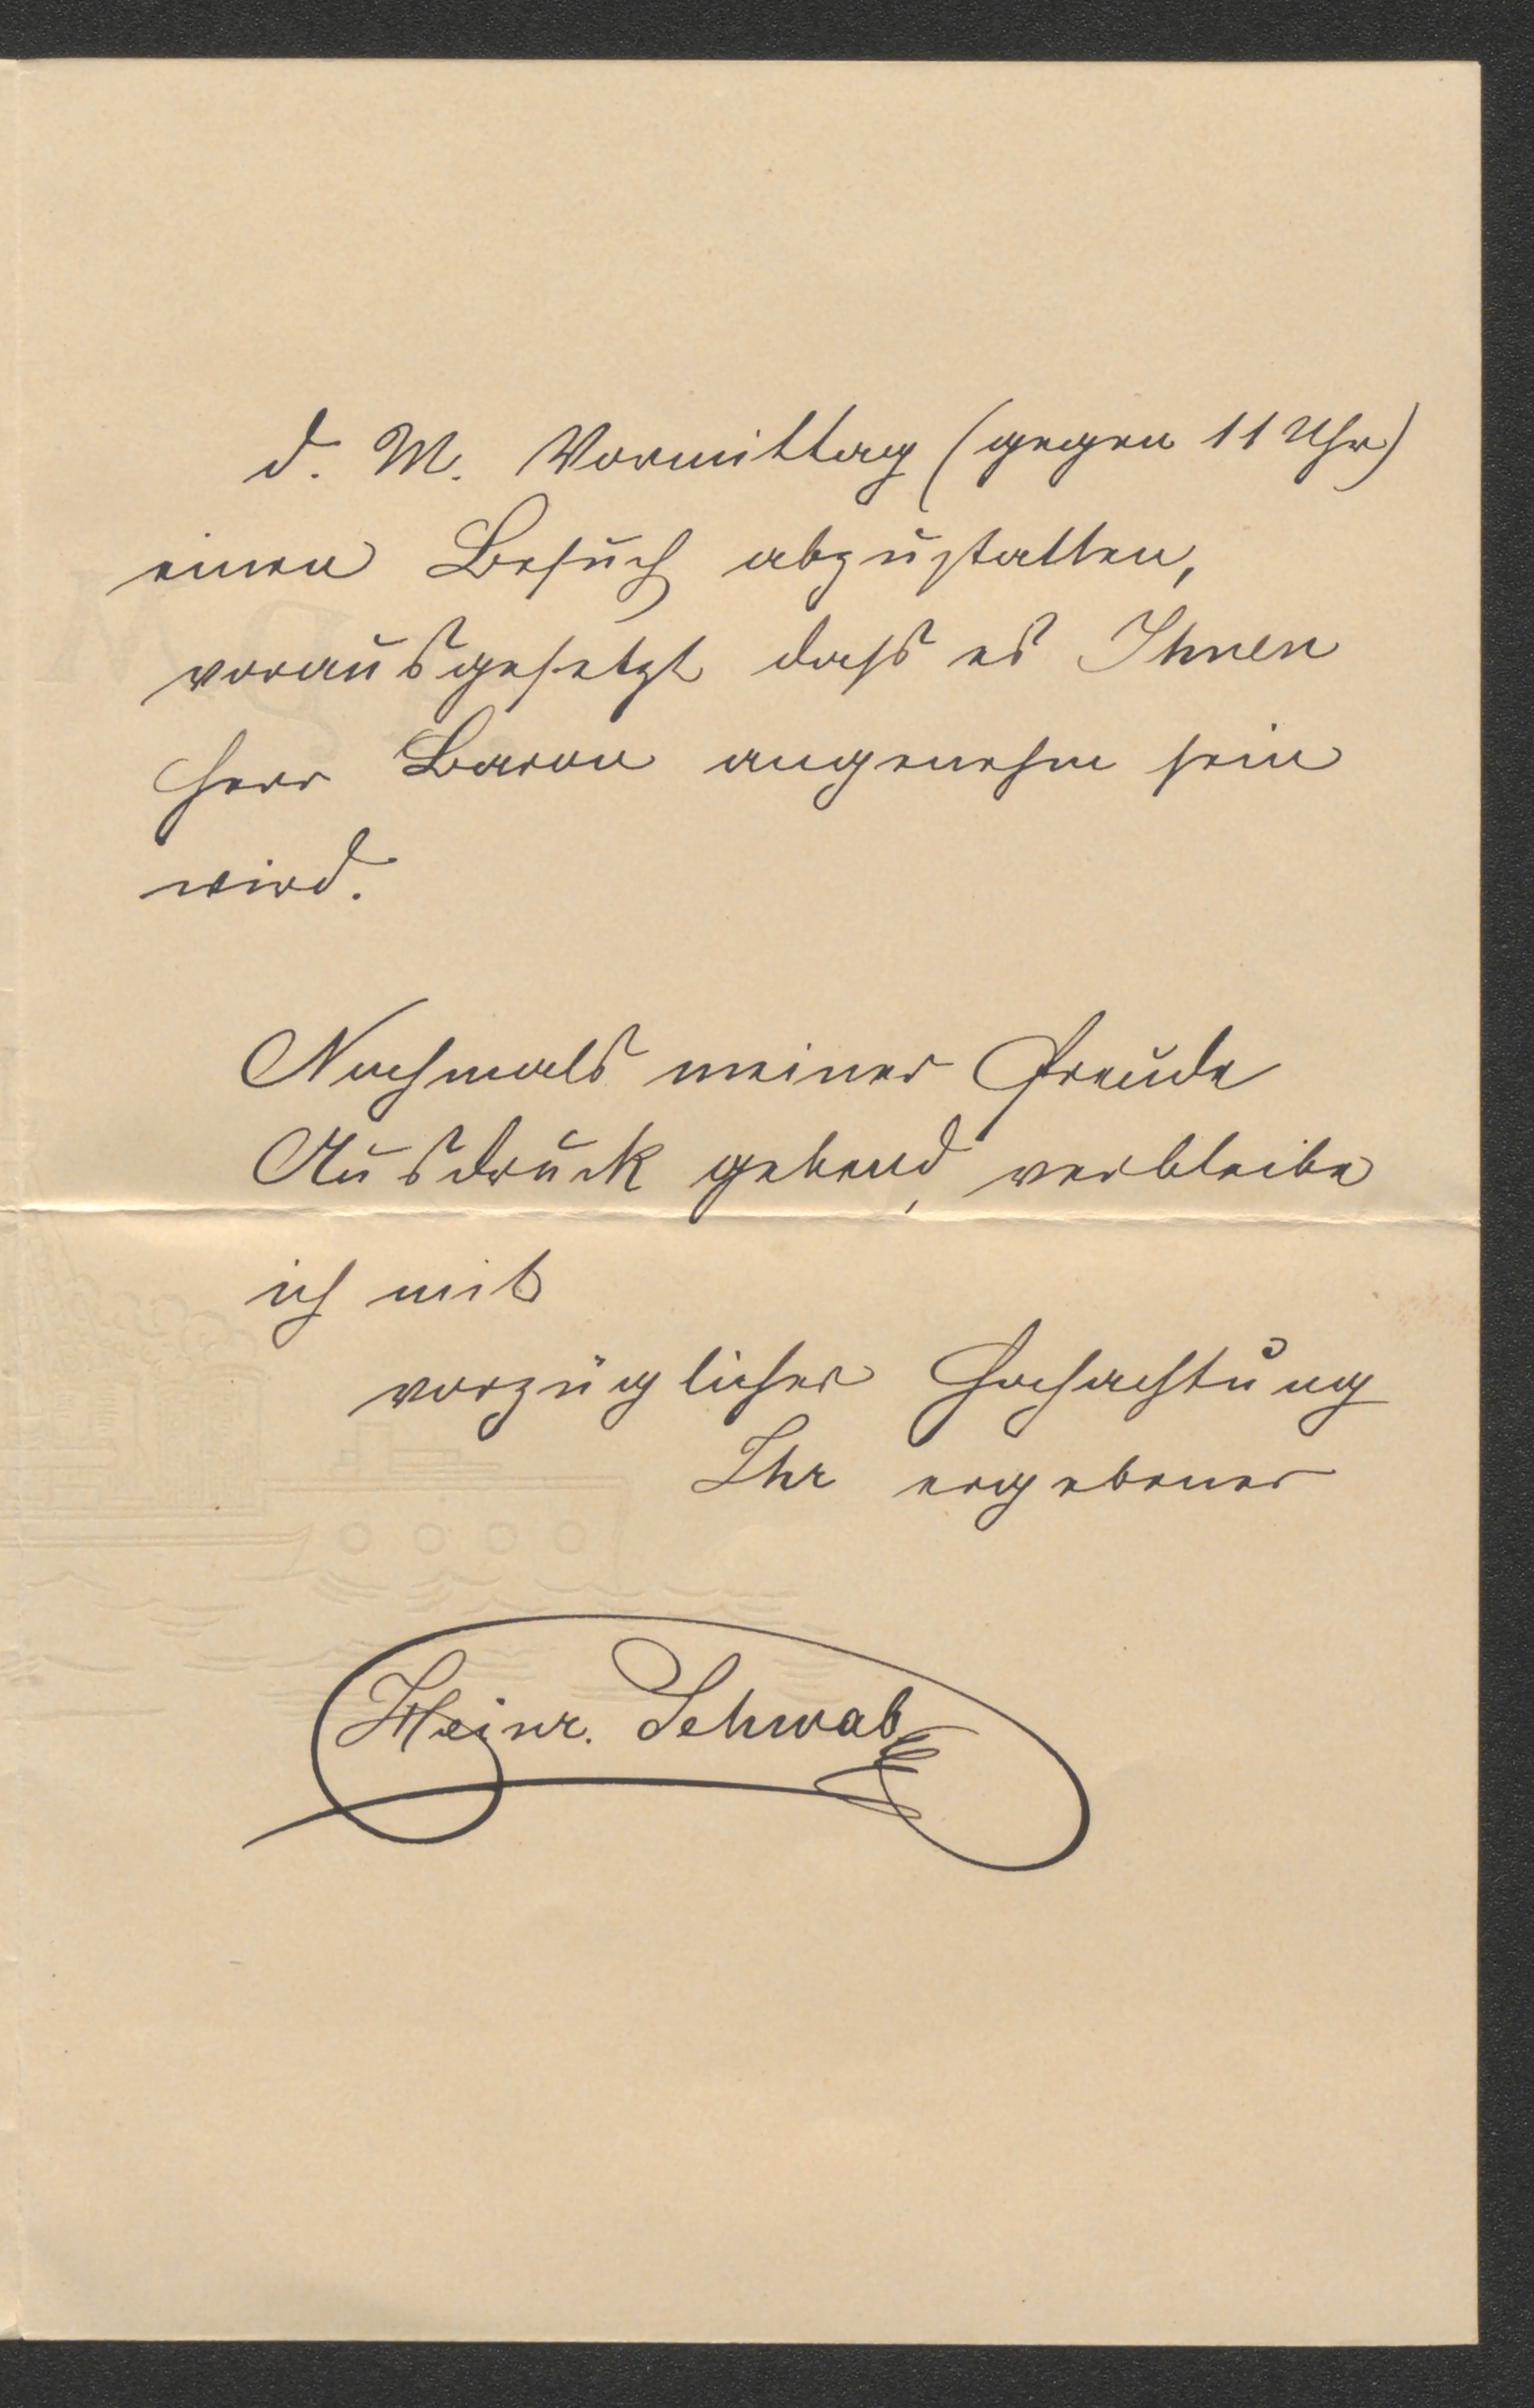 d. M. Vormittag (gegen 11 Uhr)
einen Besuch abzustatten,
vorausgesetzt dass es Ihnen
Herr Baron angenehm sein
wird.
Nochmals meiner Freude
Ausdruck gebend, verbleibe
ich mit
vorzüglicher Hochachtung
Ihr ergebener
Heinr. Schwab